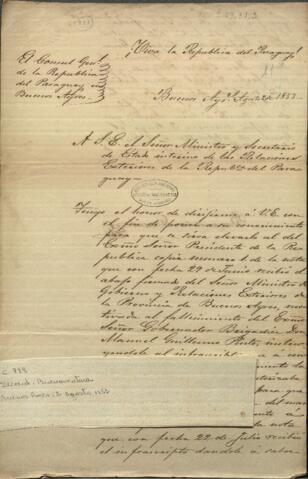 ¡Viva la Republica del Paraguay!
El Consul Genl.
de la Republica
del Paraguay en
Buenos Ayres.
Buenos Ays. Agto. 2 de 1853
A S. E. el Señor Ministro y Secretario
de Estado interino de las Relaciones
Exteriores de la Repuba. del Para
guay
Tengo el honor de dirijirme á V. E. con
el fin de poner a su conocimiento
para que se sirva elevarlo al del
Exmo Señor Presidente de la Re
publica copia numero 1 de la nota
que con fecha 29 de Junio recibió el
abajo firmado del Señor Ministro de
Gobierno y Relaciones Exteriores de
la Provincia de Buenos Ayres, mo
tivada al fallecimiento del Exmo
Señor Gobernador Brigadier Don
Manuel Guillermo Pinto,
C. 998
Buenaventura
Buenos Aires, 2 agosto 1853
para que
la nota
que con fecha 22 de Julio recibió
el infrascripto dandole á saber